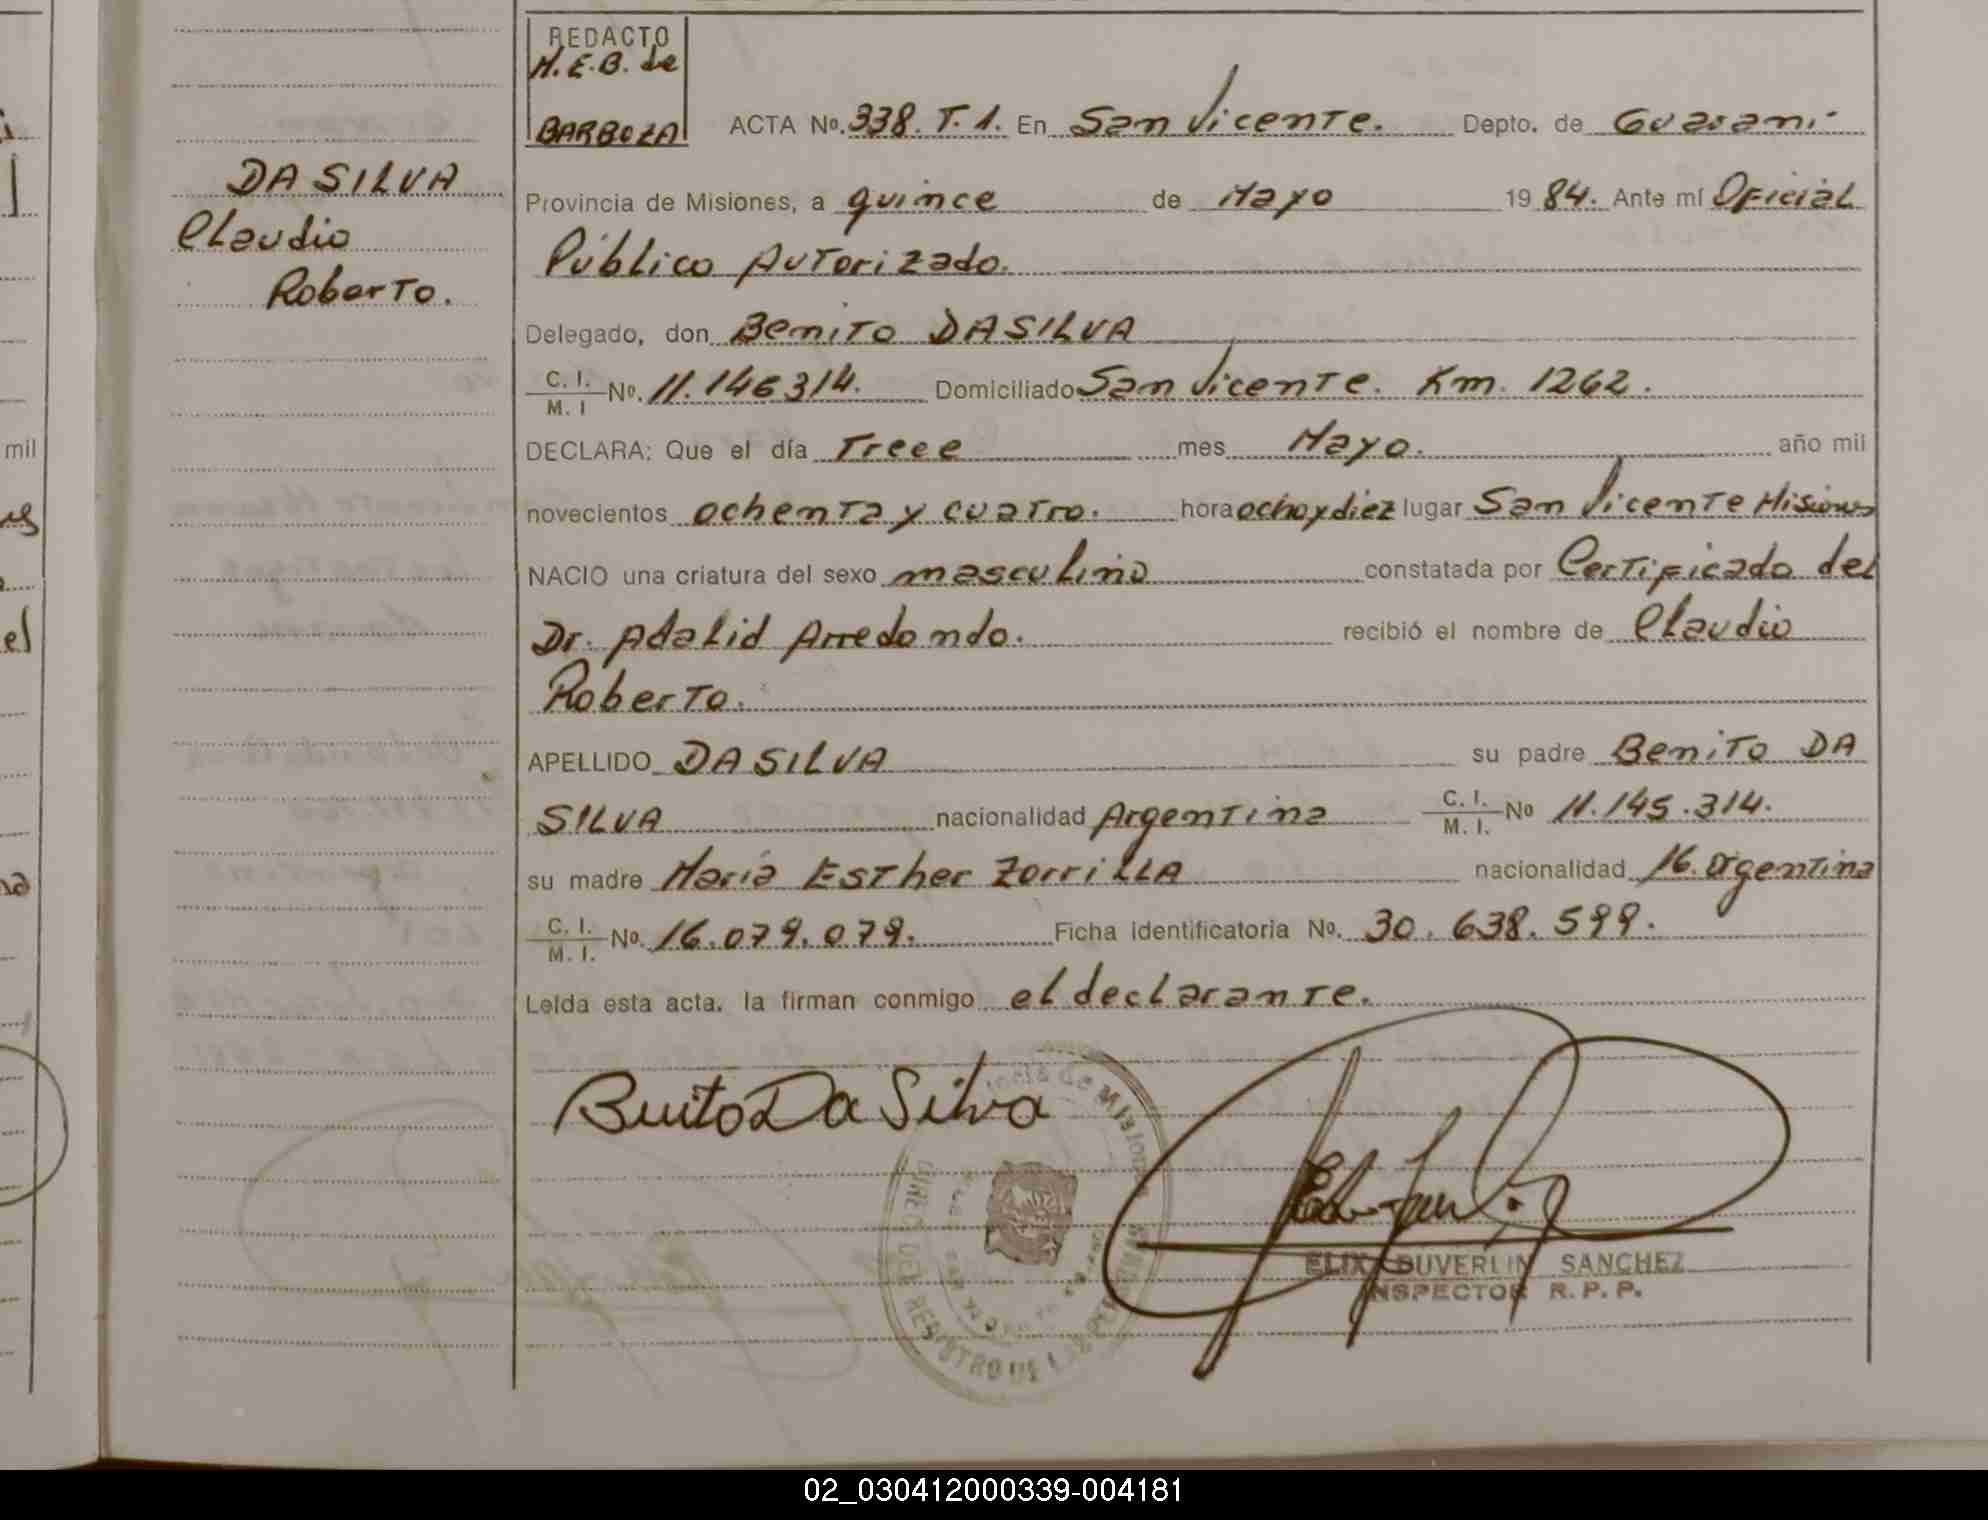 REDACTO
M.E.B. de
BARBOZA
DA SILVA
Claudio
Roberto.
ACTA No. 338. T. 1. En San Vicente. Depto. de Guaraní
Provincia de Misiones, a quince de Mayo 19 84. Ante mí Oficial
Público Autorizado.
Delegado, don Benito DA SILVA
C. I. / M. I No. 11.146314. Domiciliado San Vicente. Km. 1262.
DECLARA: Que el día Trece mes Mayo. año mil
novecientos ochenta y cuatro. hora ocho y diez lugar San Vicente Misiones
NACIO una criatura del sexo masculino constatada por Certificado del
Dr. Adalid Arredondo. recibió el nombre de Claudio
Roberto.
APELLIDO DA SILVA su padre Benito DA
SILVA nacionalidad Argentina C. I. / M. I. No 11.145.314.
su madre María Esther Zorrilla nacionalidad 16. argentina
C. I. / M. I. No. 16.079.079. Ficha identificatoria No. 30.638.599.
Leída esta acta, la firman conmigo el declarante.
Benito Da Silva
ELIX DUVERLIN SANCHEZ
INSPECTOR R. P. P.
mil
el
02_030412000339-004181